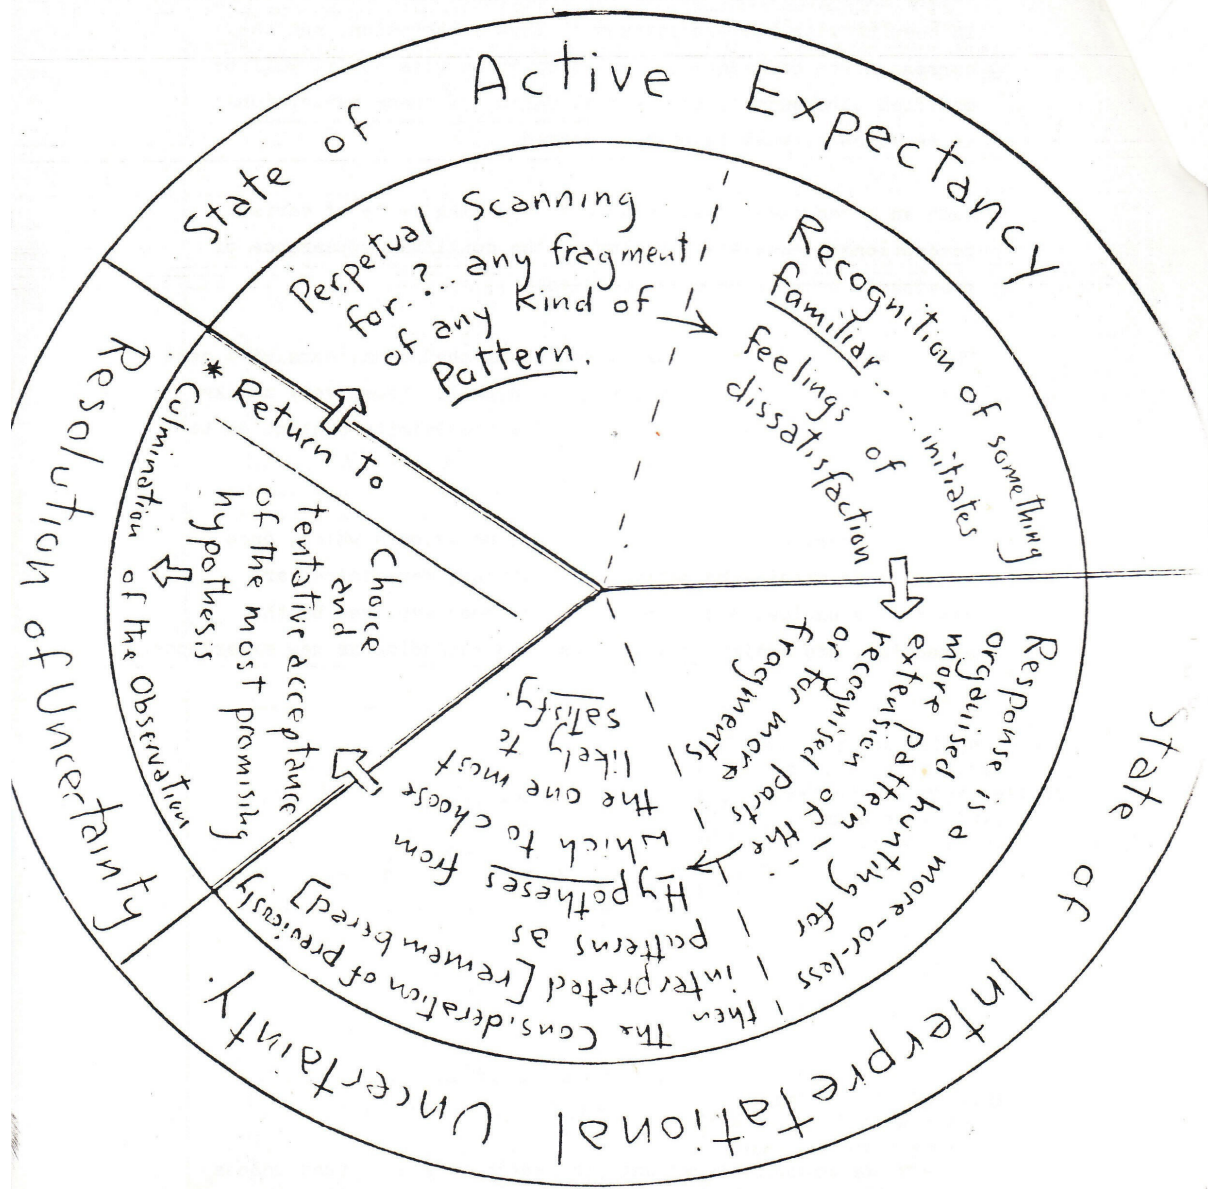 State of Active Expectancy
Perpetual Scanning
for..?... any fragment
of any kind of
Pattern.
Recognition of something
familiar.... initiates
feelings of
dissatisfaction
State of Interpretational Uncertainty.
Response is a more-or-less
organised hunting for
more pattern –
extension of the
recognised parts
or for more
fragments
then the Consideration of previously
interpreted [remembered]
patterns as
Hypotheses from
which to choose
the one most
likely to
satisfy.
Resolution of Uncertainty
Choice
and
tentative acceptance
of the most promising
hypothesis
Culmination of the Observation
* Return to